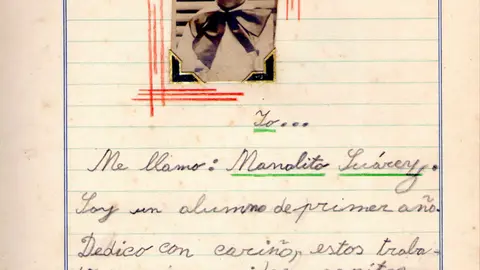 Yo...
Me llamo: Manolito Suárez.
Soy un alumno de primer año.
Dedico con cariño, estos traba-